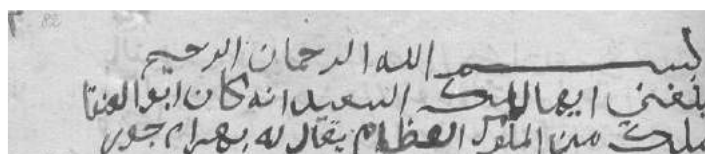 82
بسم الله الرحمان الرحيم
بلغني ايها الملك السعيد انه كان ابو العنقا
ملك من الملوك العظام يقال له بهرام جور